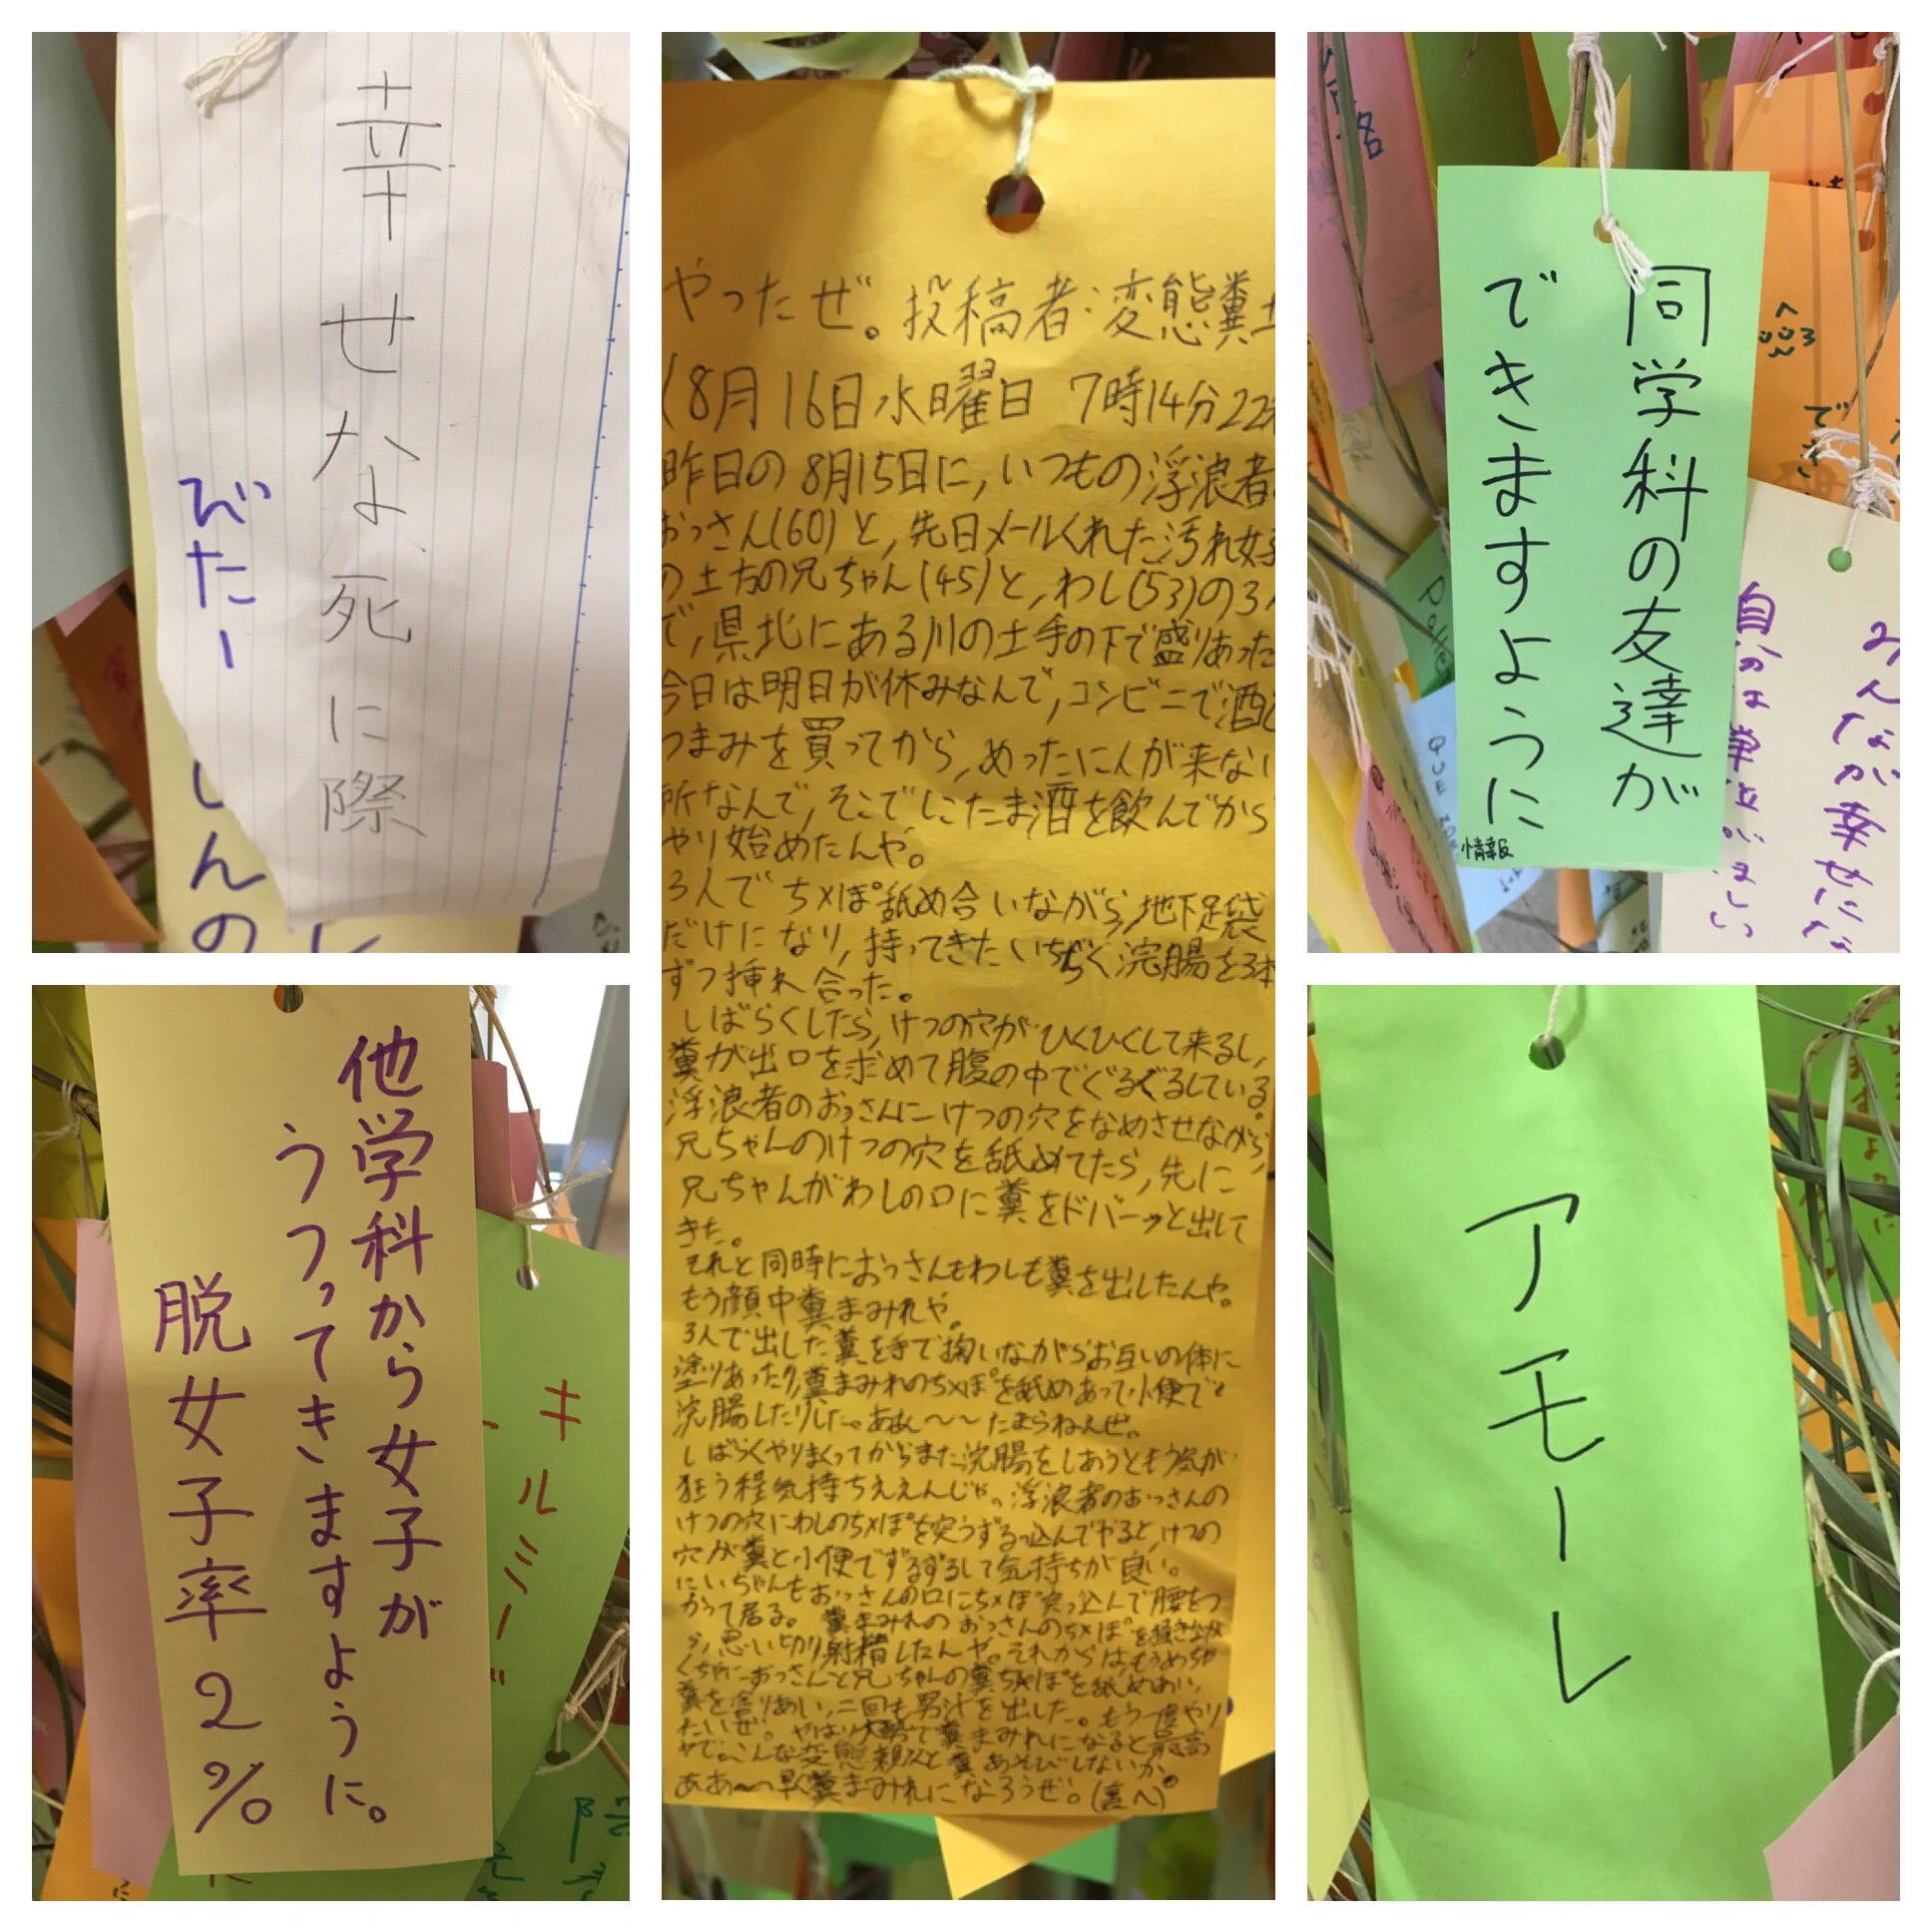 幸せな死に際
びたー
しんの
やったぜ。投稿者:変態糞土
(8月16日水曜日 7時14分22秒
昨日の8月15日に,いつもの浮浪者の
おっさん(60)と,先日メールくれた汚れ好き
の土方の兄ちゃん(45)と,わし(53)の3人
で,県北にある川の土手の下で盛りあった
今日は明日が休みなんで,コンビニで酒と
つまみを買ってから,めったに人が来ない
所なんで,そこでしこたま酒を飲んでから
やり始めたんや。
3人でちxぽ舐め合いながら,地下足袋
だけになり,持ってきたいちぢく浣腸を3本
ずつ挿れ合った。
しばらくしたら,けつの穴がひくひくして来るし,
糞が出口を求めて腹の中でぐるぐるしている。
浮浪者のおっさんにけつの穴をなめさせながら,
兄ちゃんのけつの穴を舐めてたら,先に
兄ちゃんがわしの口に糞をドバーッと出して
きた。
それと同時におっさんもわしも糞を出したんや。
もう顔中糞まみれや。
3人で出した糞を手で掬いながらお互いの体に
塗りあったり,糞まみれのちxぽを舐めあって小便で
浣腸したりした。ああ~~たまらねえぜ。
しばらくやりまくってからまた浣腸をしあうともう気が
狂う程気持ちええんじゃ。浮浪者のおっさんの
けつの穴にわしのちxぽを突うずるっ込んでやると,けつの
穴が糞と小便でずるずるして気持ちが良い。
にいちゃんもおっさんの口にちxぽ突っ込んで腰をつ
かって居る。糞まみれのおっさんのちxぽを掻きなが
ら,思い切り射精したんや。それからはもうめちゃ
くちゃにおっさんと兄ちゃんの糞ちxぽを舐めあい,
糞を塗りあい,二回も男汁を出した。もう一度やり
たいぜ。やはり大勢で糞まみれになると最高
やで。こんな変態親父と糞あそびしないか。
ああ~~早く糞まみれになろうぜ。
同学科の友達が
できますように
情報
みんなが幸せにな
自分は単位がほしい
他学科から女子が
うつってきますように。
脱女子率2%
キルミー
アモーレ